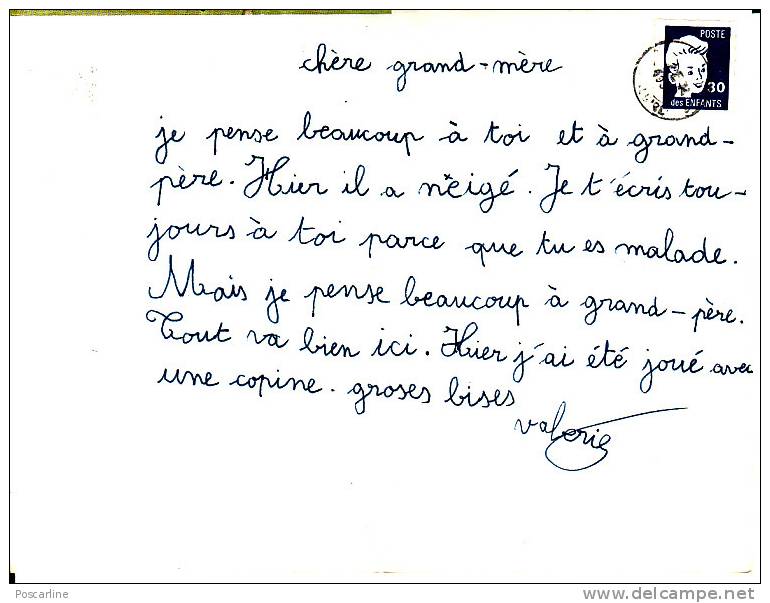 POSTE
30
des ENFANTS
chère grand-mère
je pense beaucoup à toi et à grand-
père. Hier il a neigé. Je t'écris tou-
jours à toi parce que tu es malade.
Mais je pense beaucoup à grand-père.
Tout va bien ici. Hier j'ai été joué avec
une copine. groses bises
valerie
Poscarline
delcampe.net